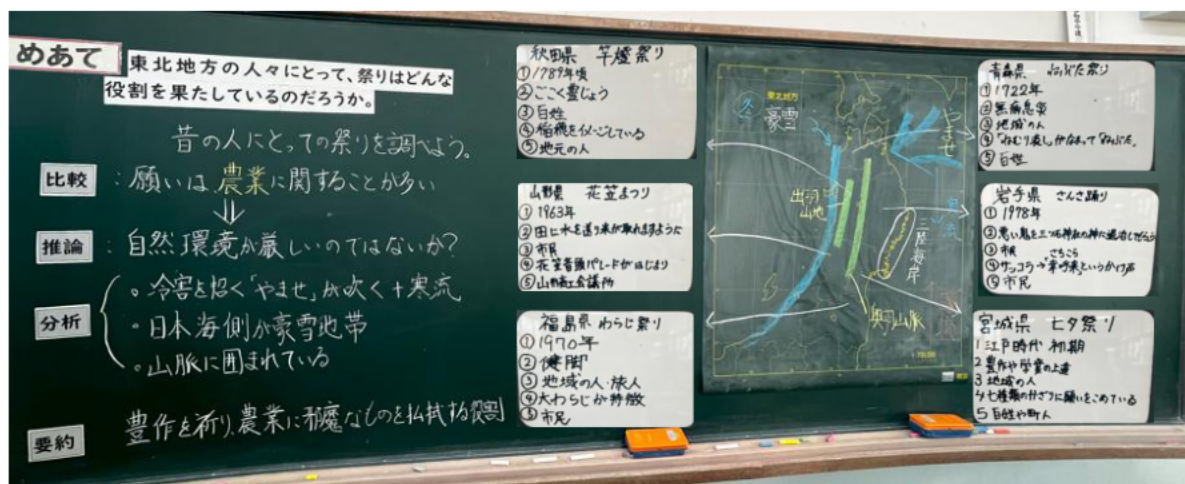 めあて
東北地方の人々にとって、祭りはどんな
役割を果たしているのだろうか。
昔の人にとっての祭りを調べよう。
比較
:願いは農業に関することが多い
⇓
推論
:自然環境が厳しいのではないか?
分析
。冷害を招く「やませ」が吹く+寒流
・日本海側が豪雪地帯
・山脈に囲まれている
要約
豊作を祈り、農業に邪魔なものを払拭する役割
秋田県 竿燈祭り
①1789年頃
②ごこく豊じょう
③百姓
④稲穂をイメージしている
⑤地元の人
山形県 花笠まつり
①1963年
②田に水を送り米が取れますように
③市民
④花笠音頭パレードがはじまり
⑤山形商工会議所
福島県 わらじ祭り
①1970年
②健脚
③地域の人・旅人
④大わらじが特徴
⑤市民
東北地方
冬
豪雪
やませ
出羽
山地
三陸海岸
奥羽山脈
青森県 ねぶた祭り
①1722年
②無病息災
③地域の人
④「ねむり流し」がなまって「ねぶた」
⑤百姓
岩手県 さんさ踊り
①1978年
②悪い鬼を三つ石神社の神に退治してもらう
③市民
さちこら
④サッコラ→幸呼来というかけ声
⑤市民
宮城県 七夕祭り
1 江戸時代 初期
2 豊作や学業の上達
3 地域の人
4 七種類のかざりに願いをこめている
5 百姓や町人